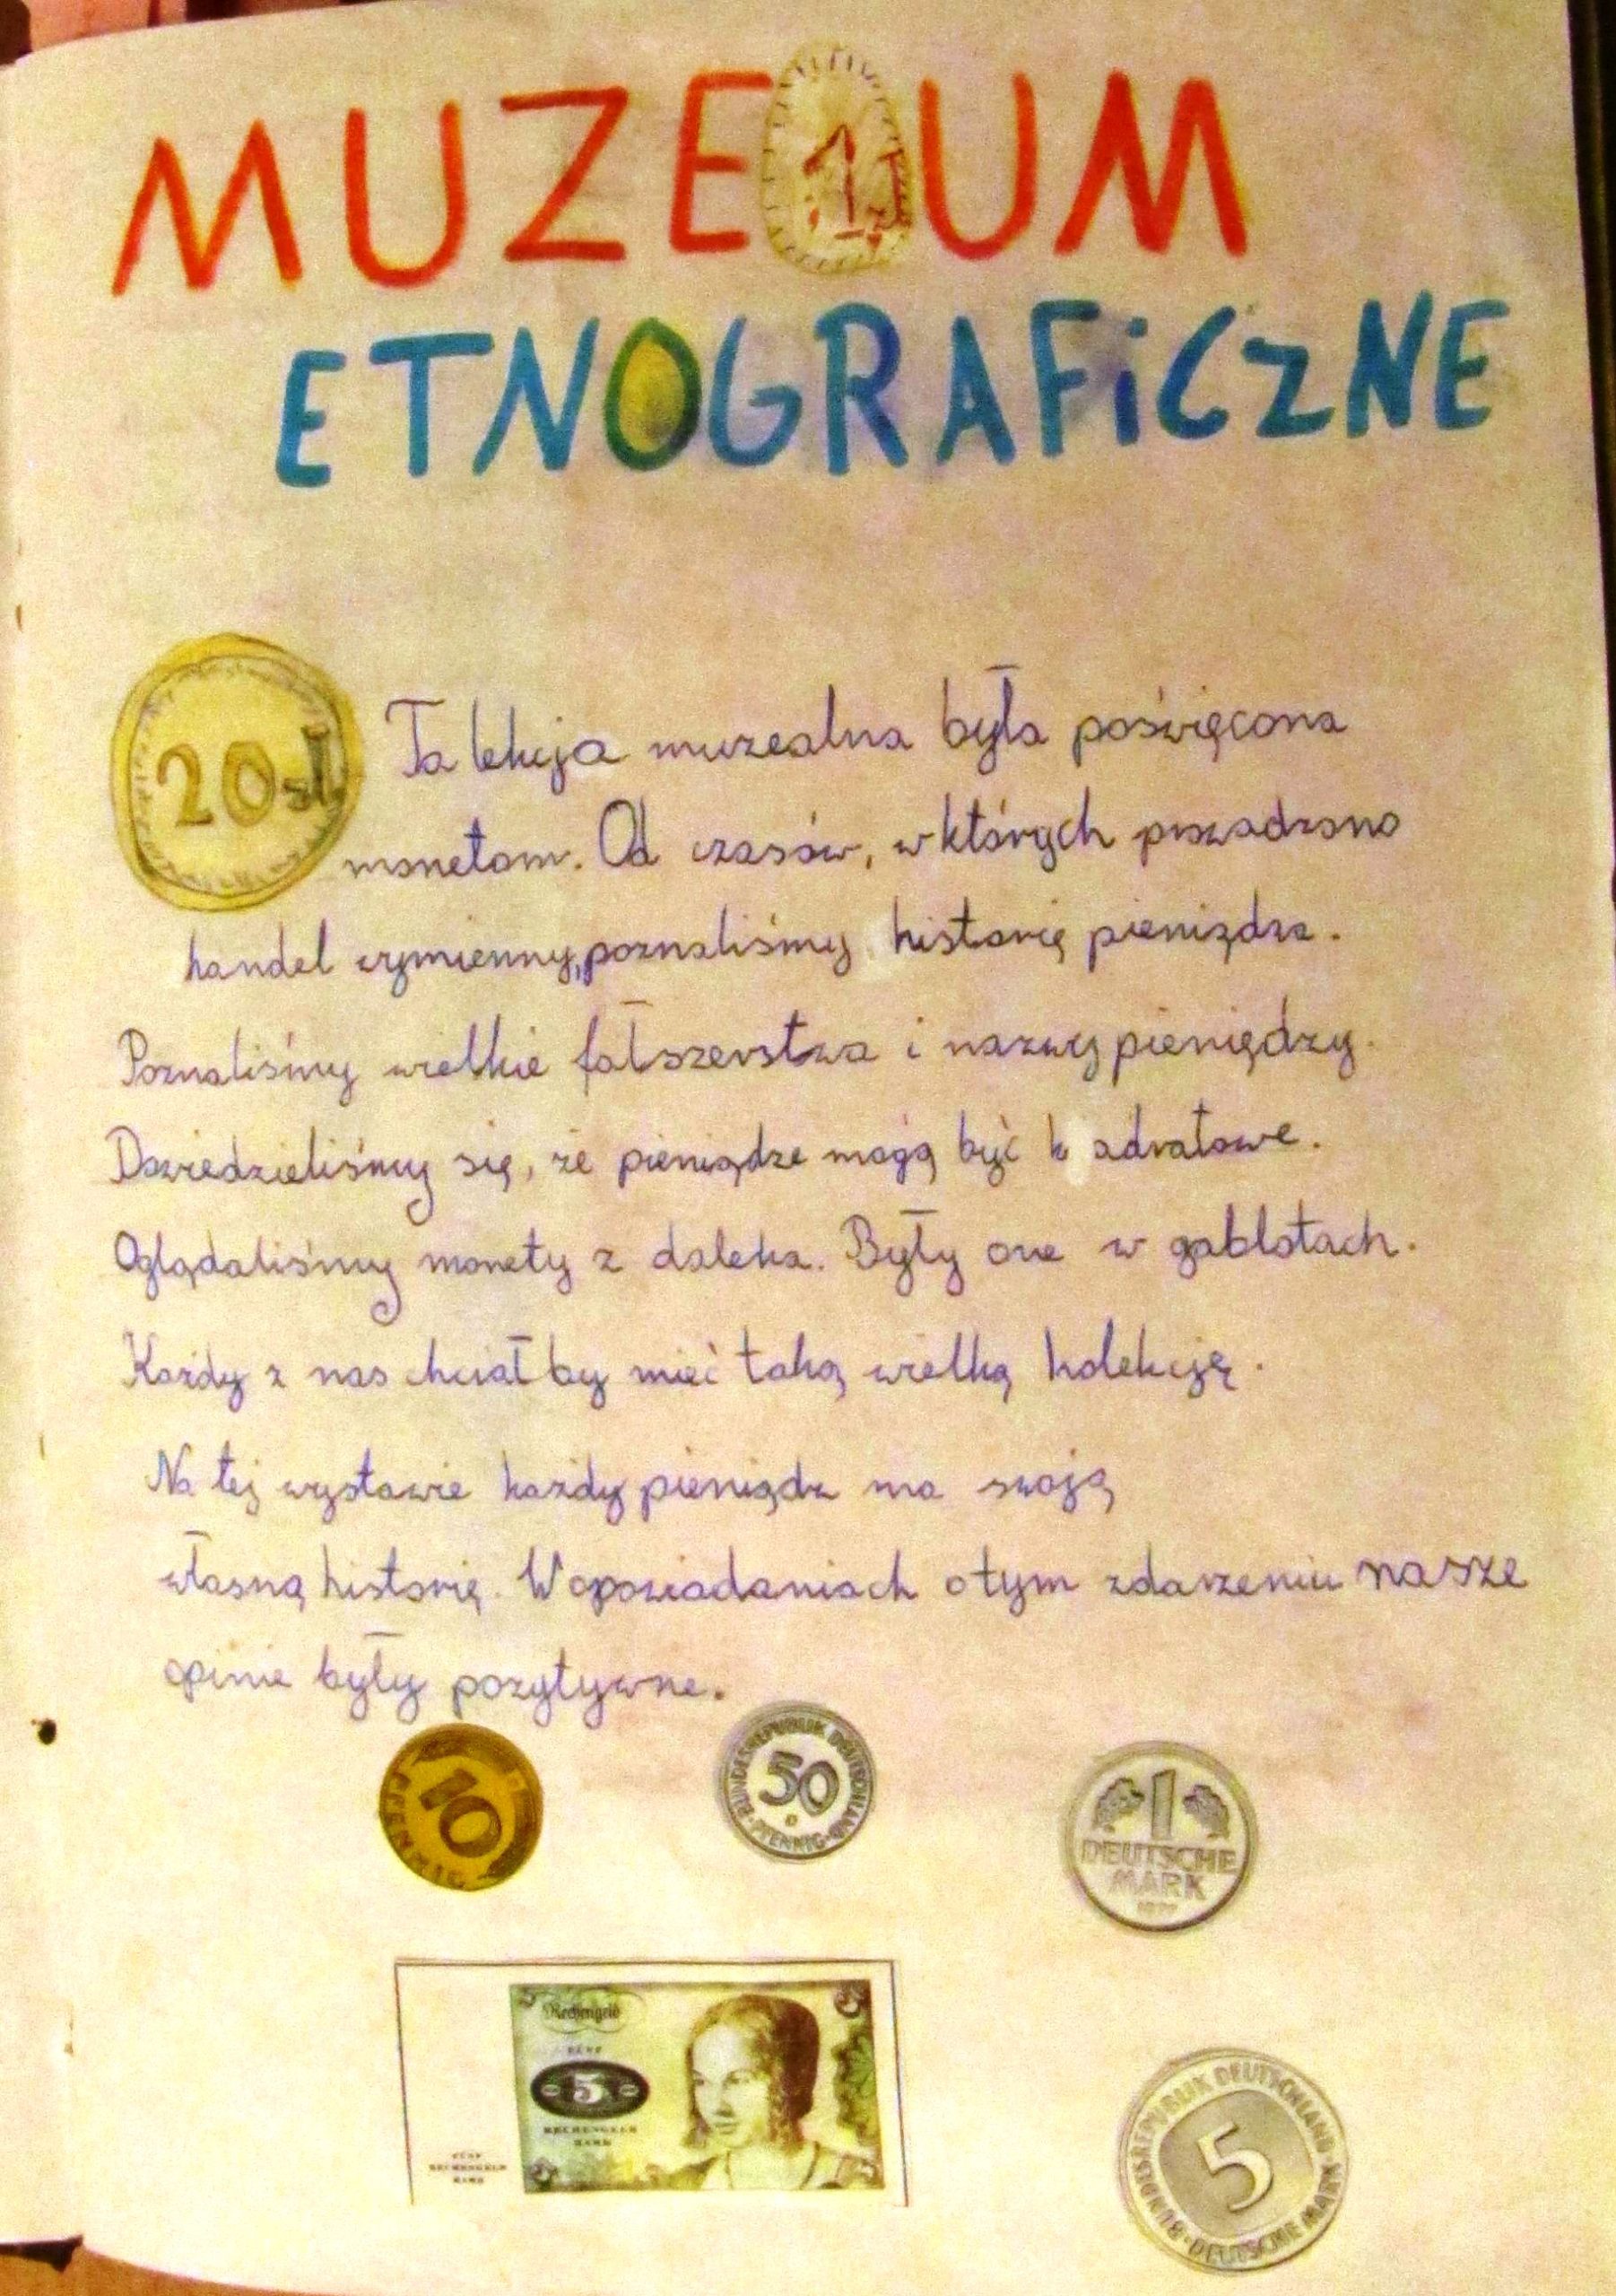 MUZEUM
1 zł
ETNOGRAFiCZNE
20 zł
Ta lekcja muzealna była poświęcona
monetom. Od czasów, w których prowadzono
handel wymienny, poznaliśmy historię pieniądza.
Poznaliśmy wielkie fałszerstwa i nazwy pieniędzy.
Dowiedzieliśmy się, że pieniądze mogą być kwadratowe.
Oglądaliśmy monety z daleka. Były one w gablotach.
Każdy z nas chciałby mieć taką wielką kolekcję.
Na tej wystawie każdy pieniądz ma swoją
własną historię. W opowiadaniach o tym zdarzeniu nasze
opinie były pozytywne.
10
PFENNIG
BUNDESREPUBLIK DEUTSCHLAND
50
PFENNIG
1
DEUTSCHE
MARK
5 5
Rechengeld
FÜNF
5
RECHENGELD
MARK
FÜNF
RECHENGELD
MARK
BUNDESREPUBLIK DEUTSCHLAND
5
DEUTSCHE MARK